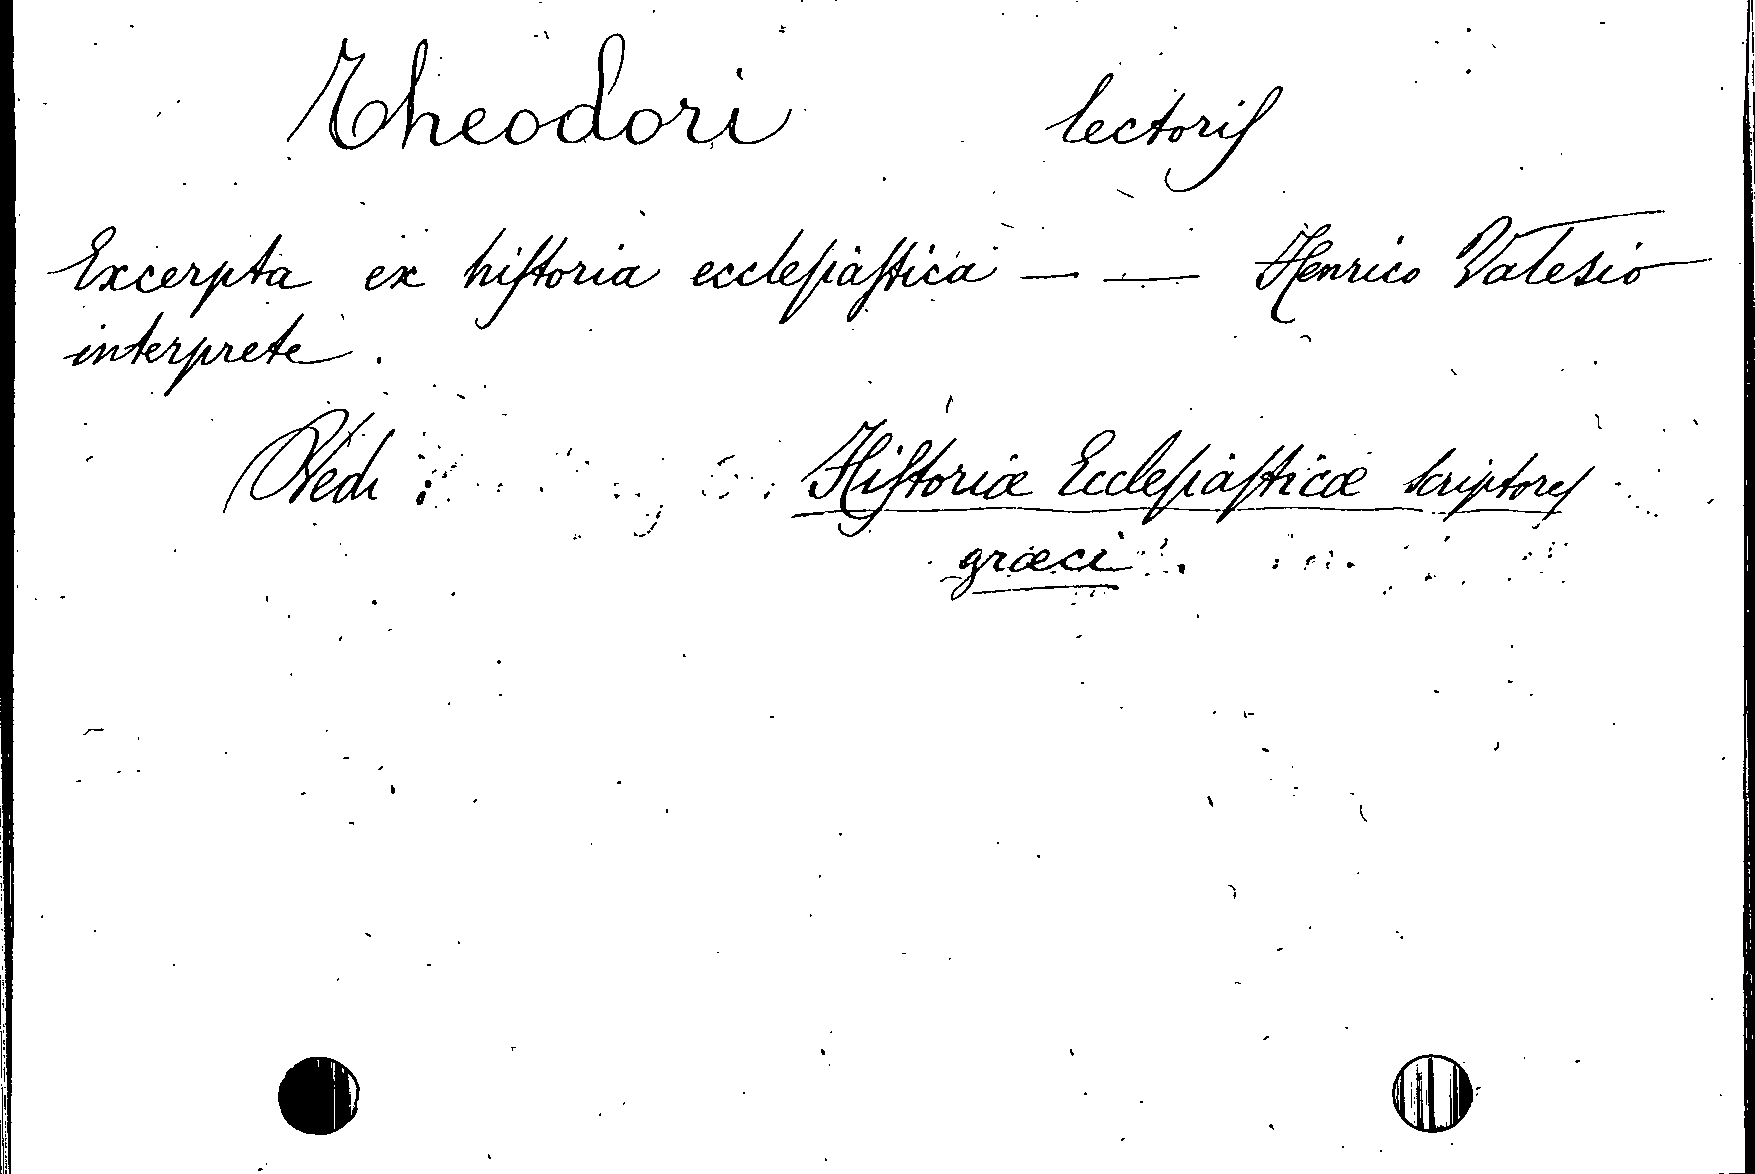 Theodori lectoriſ
Excerpta ex hiſtoria eccleſiaſtica — — Henrico Valesio
interprete.
Vedi: Hiſtoriæ Eccleſiaſticæ scriptores
græci.